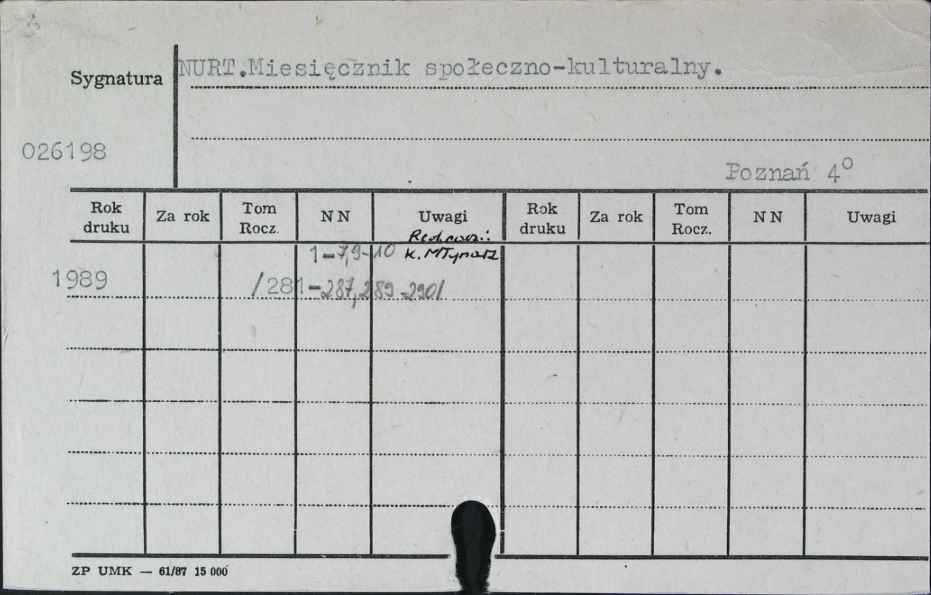 NURT.Miesięcznik społeczno-kulturalny.
Sygnatura
026198
Poznań 4°
Rok druku Za rok Tom Rocz. NN Uwagi Rok druku Za rok Tom Rocz. NN Uwagi
1-7,9-10 K. Młynarz
1989 /281-287,289-290/
ZP UMK — 61/87 15 000